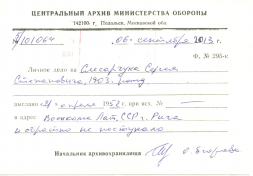 ЦЕНТРАЛЬНЫЙ АРХИВ МИНИСТЕРСТВА ОБОРОНЫ
142100- г. Подольск, Московской обл.
№ /101064 06. сентября 2013 г.
Ф. № 295-к
Личное дело на Слесарчука Сергея
Степановича, 1903. года
выдано 21 апреля 1952 г. при исх. № —
в адрес Военкома Лат. ССР г. Рига
и обратно не поступало
Начальник архивохранилища